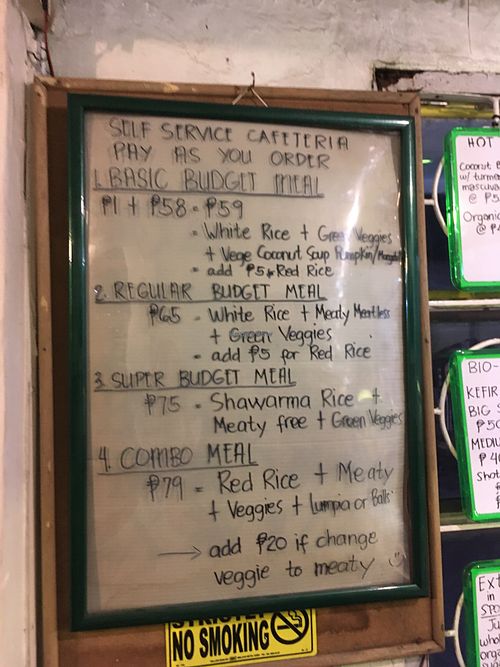 SELF SERVICE CAFETERIA
PAY AS YOU ORDER
1. BASIC BUDGET MEAL
₱1 + ₱58 = ₱59
= White Rice + Green Veggies
+ Vege Coconut Soup Pumpkin/
= add ₱5 Red Rice
2. REGULAR BUDGET MEAL
₱65 = White Rice + Meaty Meatless
+ Green Veggies
= add ₱5 for Red Rice
3. SUPER BUDGET MEAL
₱75 = Shawarma Rice +
Meaty free + Green Veggies
4. COMBO MEAL
₱79 = Red Rice + Meaty
+ Veggies + Lumpia or Balls
→ add ₱20 if change
veggie to meaty
STRICTLY
NO SMOKING
HOT
Coconut
w/
@ ₱5
Organic
@ ₱
BIO-
KEFIR
BIG
₱50
MEDIU
₱40
Shot
Ext
in